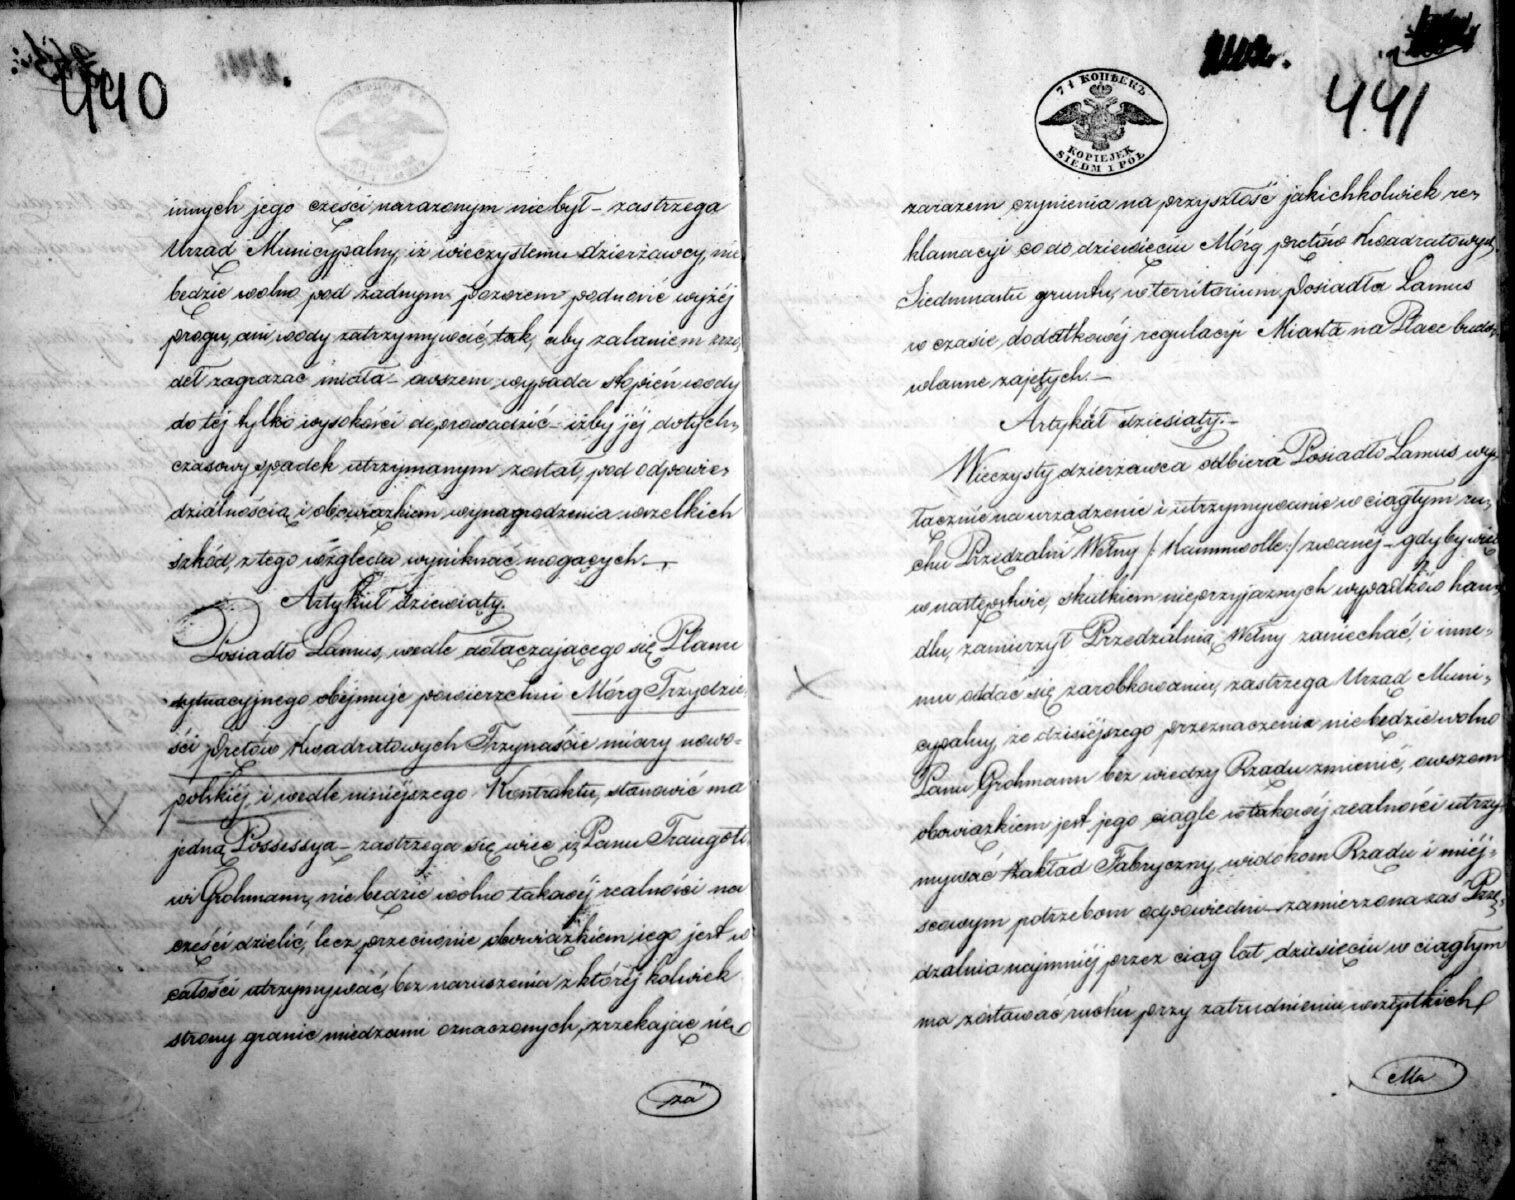 440
innych jego części narażonym nie był – zastrzega
Urząd Municypalny, iż wieczystemu dzierżawcy, nie
będzie wolno pod żadnym pozorem podnosić wyżéj
progu, ani wody zatrzymywać, tak, aby zalaniem źró„
deł zagrażać miała – owszem wypada stopień wody
do téj tylko wysokości doprowadzić – iżby jéj dotych„
czasowy spadek utrzymanym został, pod odpowie„
dzialnością i obowiązkiem wynagrodzenia wszelkich
szkód, z tego względu wyniknąć mogących. –
Artykuł dziewiąty.
Posiadło Lamus, wedle dołączającego się Planu
sytuacyjnego obéjmuje powierzchni Mórg Trzydzie„
ści prętów Kwadratowych Trzynaście miary nowo„
polskiéj i wedle niniejszego Kontraktu, stanowić ma
jedną Possessyą – zastrzega się więc iż Panu Traugott„
wi Grohmann, nie będzie wolno takowéj realności na
części dzielić, lecz przeciwnie obowiązkiem jego jest w
całości utrzymywać, bez naruszenia z któréj kolwiek
strony granic miedzami oznaczonych, zrzekając się
za
71 КОПѢЕКЪ
KOPIEJEK
SIEDM I POŁ
441
zarazem czynienia na przyszłość jakichkolwiek re„
klamacyi co do dziewięciu Mórg prętów Kwadratowych
Siedmnastu gruntu, w territorium Posiadła Lamus
w czasie dodatkowéj regulacyi Miasta na Place budo„
wlanne zajętych. –
Artykuł dziesiąty. –
Wieczysty dzierżawca odbiera Posiadło Lamus wy„
łącznie na urządzenie i utrzymywanie w ciągłym ru„
chu Przędzalni Wełny /: Kammwolle :/ zwanéj – gdyby więc
w następstwie, skutkiem nieprzyjaznych wypadków han„
dlu, zamierzył Przędzalnią Wełny zaniechać, i inne„
mu oddać się zarobkowaniu, zastrzega Urząd Muni„
cypalny, że dzisiéjszego przeznaczenia nie będzie wolno
Panu Grohmann bez wiedzy Rządu zmienić, owszem
obowiązkiem jest jego ciągle w takowéj realności utrzy„
mywać Zakład Fabryczny, widokom Rządu i miéj„
scowym potrzebom odpowiedni – zamierzona zaś Przę„
dzalnia najmniéj przez ciąg lat dziesięciu w ciągłym
ma zostawać ruchu przy zatrudnieniu wszystkich